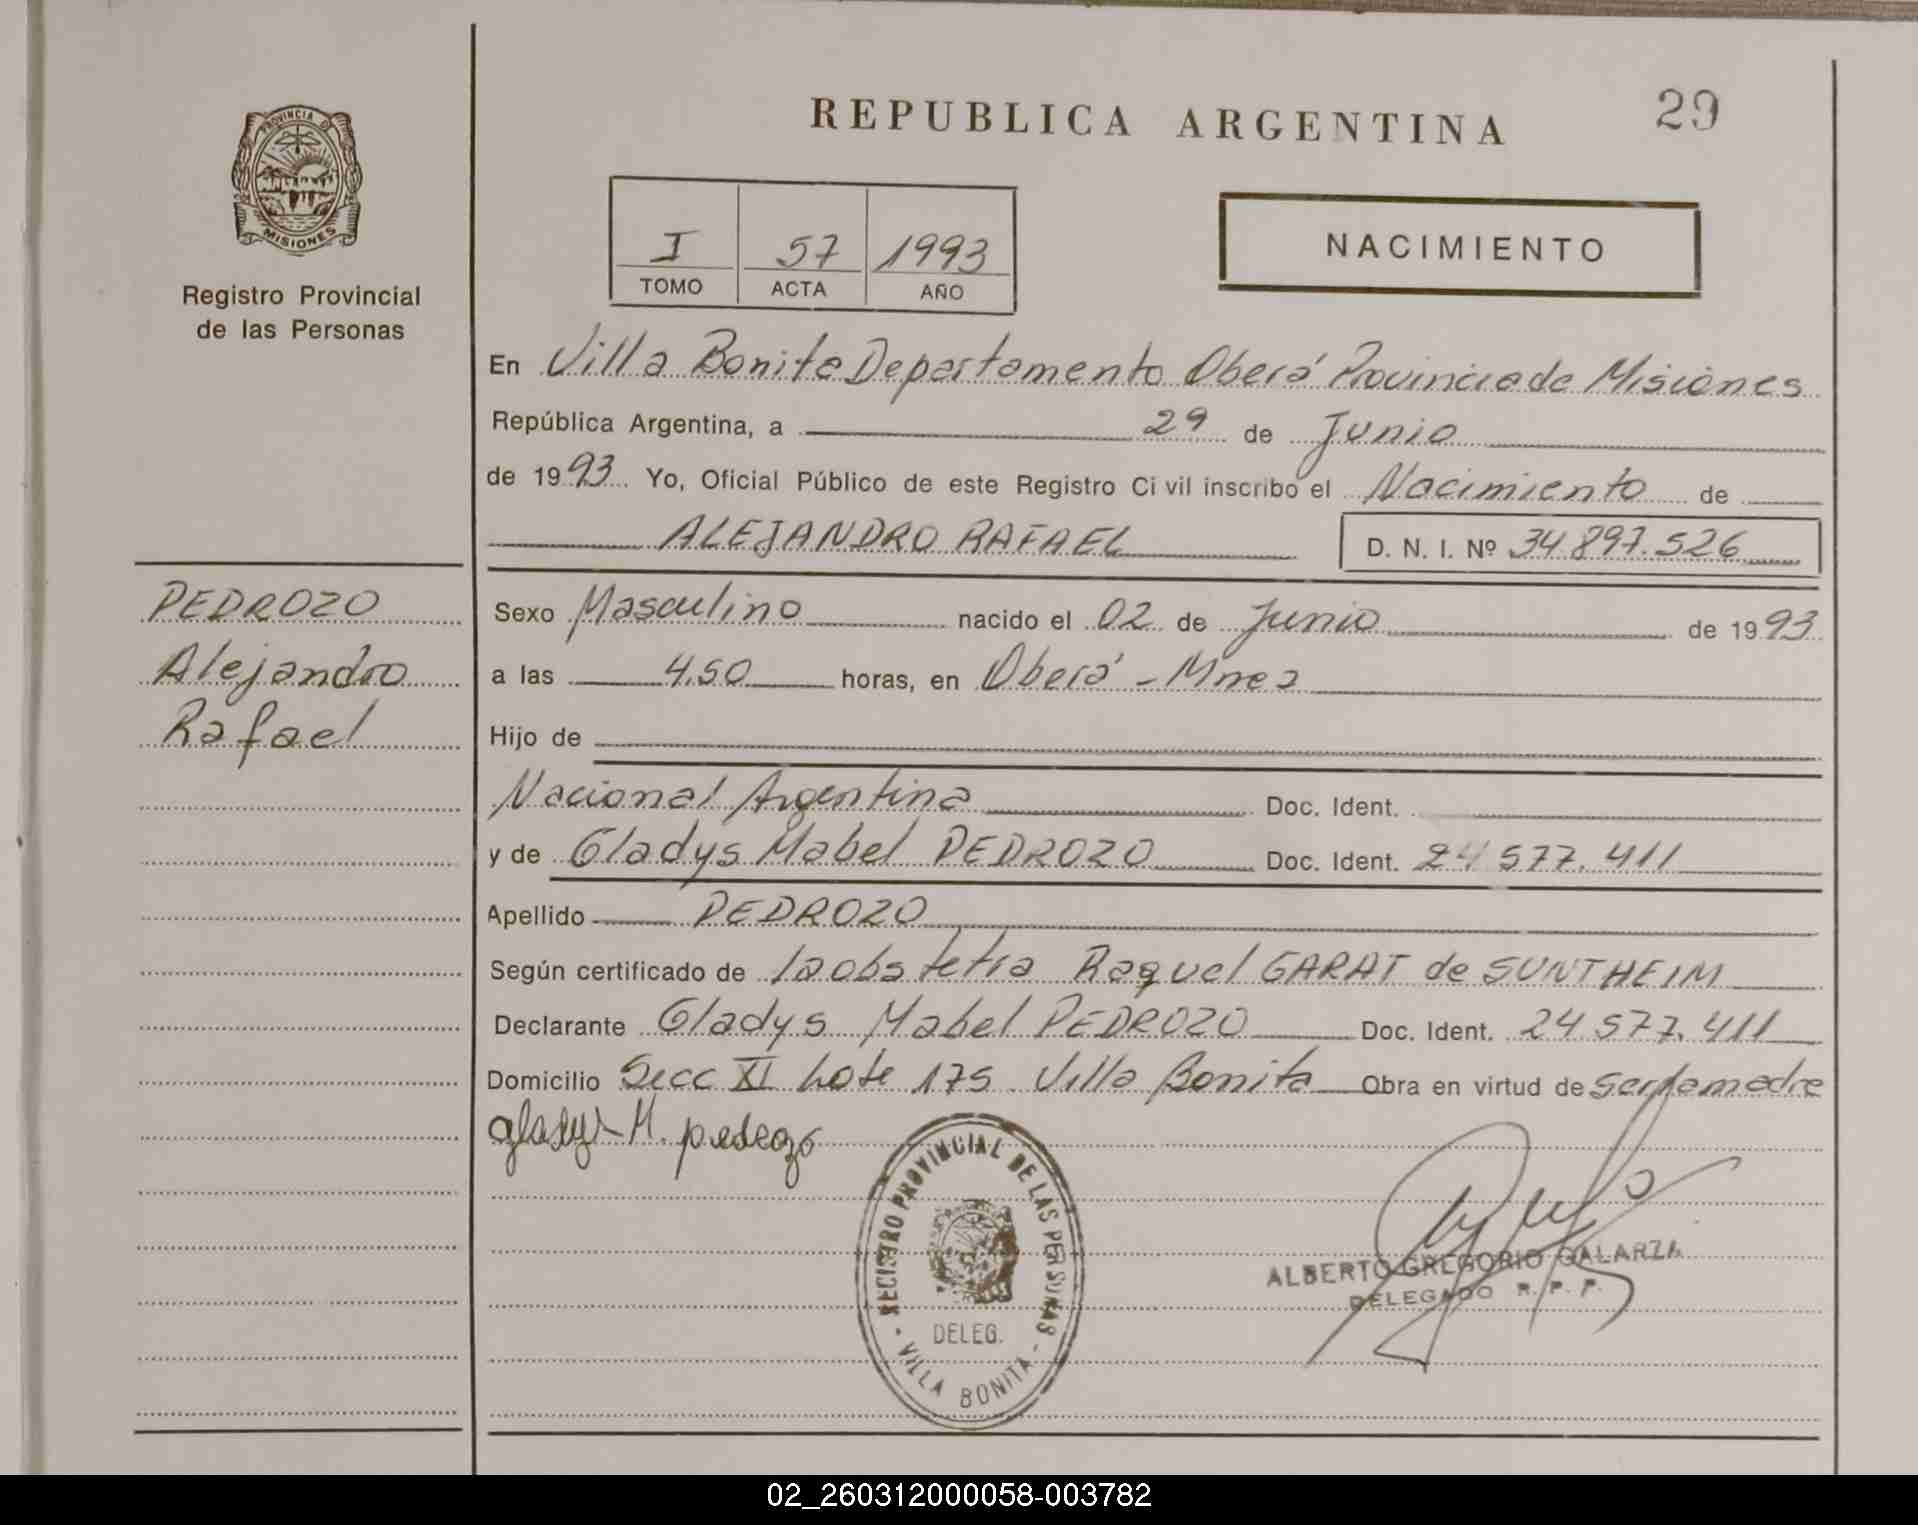 REPUBLICA ARGENTINA
29
PROVINCIA DE
MISIONES
Registro Provincial
de las Personas
I 57 1993
TOMO ACTA AÑO
NACIMIENTO
En Villa Bonita Departamento Oberá Provincia de Misiones
República Argentina, a 29 de Junio
de 1993 Yo, Oficial Público de este Registro Civil inscribo el Nacimiento de
ALEJANDRO RAFAEL D. N. I. Nº 34 897.526
PEDROZO
Alejandro
Rafael
Sexo Masculino nacido el 02 de Junio de 1993
a las 4,50 horas, en Oberá - Mnes
Hijo de
Nacional Argentina Doc. Ident.
y de Gladys Mabel PEDROZO Doc. Ident. 24 577.411
Apellido PEDROZO
Según certificado de la obstetra Raquel GARAT de SUNTHEIM
Declarante Gladys Mabel PEDROZO Doc. Ident. 24 577.411
Domicilio Secc XI Lote 175 Villa Bonita Obra en virtud de ser la madre
gladys M. pedrozo
REGISTRO PROVINCIAL DE LAS PERSONAS
DELEG.
- VILLA BONITA -
ALBERTO GREGORIO GALARZA
DELEGADO R. P. P.
02_260312000058-003782